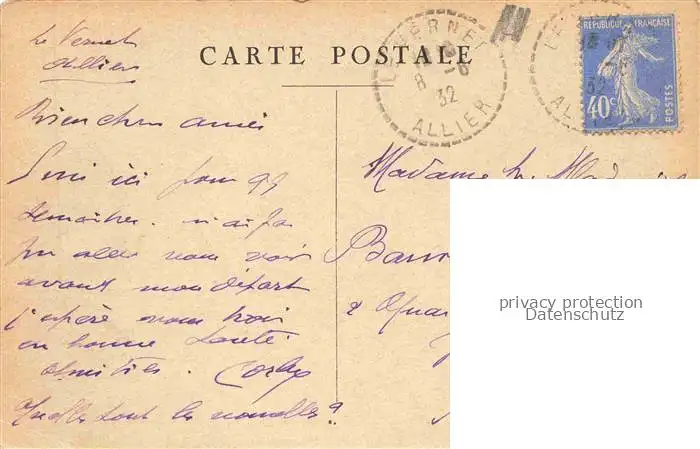 Le Vernet
Allier
CARTE POSTALE
LE VERNET
8 -6
32
ALLIER
RÉPUBLIQUE FRANÇAISE
40c
POSTES
Bien chers amis
Suis ici pour qq
semaines. n'ai pas
pu aller vous voir
avant mon départ
j'espère vous trois
en bonne santé
Amitiés.
Quelles sont les nouvelles?
Madame
privacy protection
Datenschutz